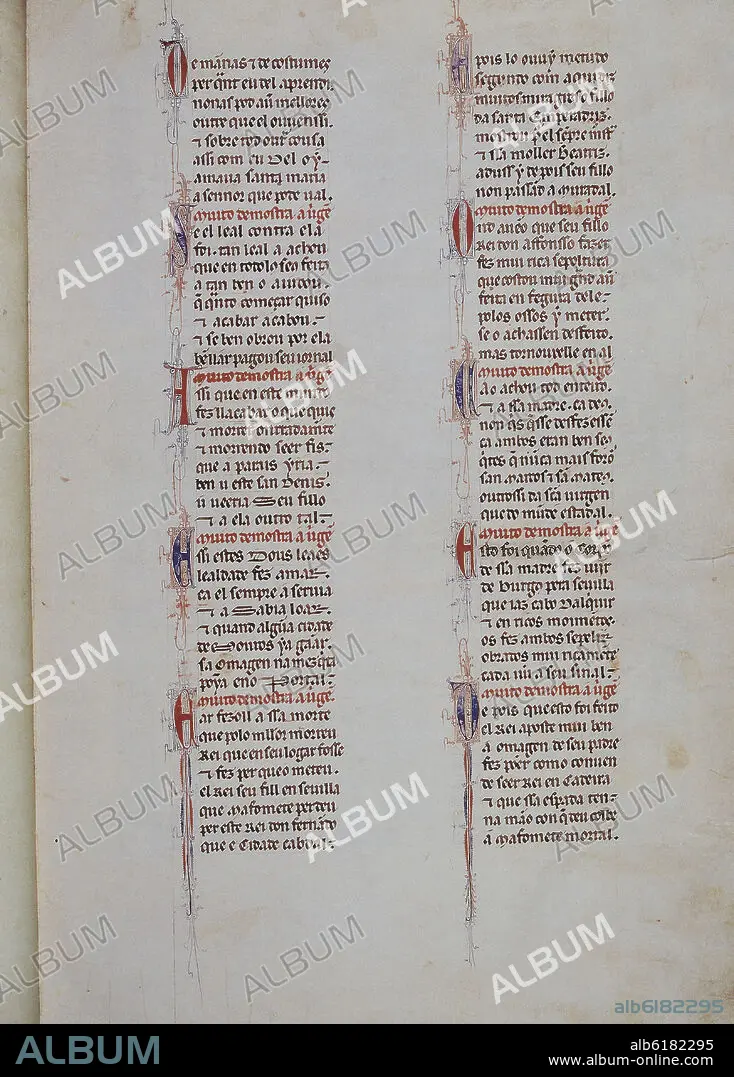 De mañas ⁊ de costumes
per qñt eu del aprendi
non as pod auer mellores
outre que el ouuen ssi.
⁊ sobre tod out cousa
assi com eu del oý.
amaua santa maria
a sennor que pode ual.
Muito demostra a uirgẽ
E el leal contra ela
foi. tan leal a achou
que en todolo seu feito
a tan ben o aiudou.
q̃ qñto começar quiso
⁊ acabar acabou.
⁊ se ben obrou por ela
ben llar pagou seu iornal
Muito demostra a uirgẽ
Assi que en este mundo
fez ll acabar o que quis
⁊ morrer onrradamẽte
⁊ morrendo seer fis.
que a parais yria.
ben u este san Denis.
u ueeria Seu fillo
⁊ a ela outro tal
Muito demostra a uirgẽ
Assi estes Dous leaes
lealdade fez amar.
ca el sempre a seruia
⁊ a Sabia loar.
⁊ quand algũa cidade
de Mouros ýa gãar.
sa Omagen na mezq̃ta
poýa eno Portal.
Muito demostra a uirgẽ
E ar fezoll a ssa morte
que polo mllor morreu
Rei que en seu logar fosse
⁊ fez per queo meteu.
el Rei seu fill en seuilla
que Mafomete perdeu
per este Rei don fernãdo
que e Cidade cabdal
E pois lo ouuý metudo
segundo com aqui diz
muitos miragres o fillo
da santa Emperadriz
mostrou p̃ el sẽpre
⁊ ssa moller Beatriz.
aduss ý depois seu fillo
non passãd a Muradal.
Muito demostra a uirgẽ
Ond aueo que seu fillo
Rei don affonsso fazer
fez mui rica sepoltura
que costou mui grãd auer
feita en fegura dele.
polos ossos ý meter.
se o achassen desfeito.
mas tornouxelle en al
Muito demostra a uirgẽ
Ca o achou tod enteiro.
⁊ a ssa madre. ca deus
non q̃s q̃ sse desfezesse
ca ambos eran ben seus
q̃tes q̃ nũca mais forõ
san Marcos ⁊ sã Mateus.
outrossi da scã uirgen
que do mũd e estadal.
Muito demostra a uirgẽ
Esto foi quãdo o Corpo
de ssa madre fez uĩir
de Burgos pera seuilla
que iaz cabo Dalquiuir
⁊ en ricos moimẽtos.
os fez ambos sepelir.
obrados mui ricamẽte
cada un a seu sinal
Muito demostra a uirgẽ
De pois que esto foi feito
el Rei aposte mui ben
a omagen de seu padre
fez põer como conuen
de seer Rei en Cadeira
⁊ que ssa espada ten
na mão con q̃ deu colbe
a Mafomete mortal.
ALBUM
alb6182295
ALBUM
alb6182295
www.album-online.com